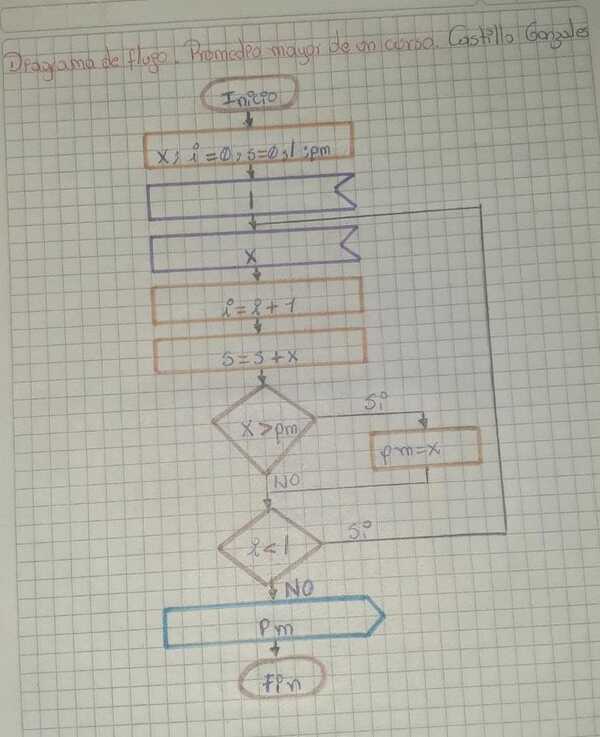 Diagrama de flugo. Promedio mayor de un curso. Castillo Gonzales
Inicio
x; i=0; s=0; l; pm
l
x
i=i+1
s=s+x
Si
x>pm
pm=x
NO
i<l
Si
NO
Pm
Fin